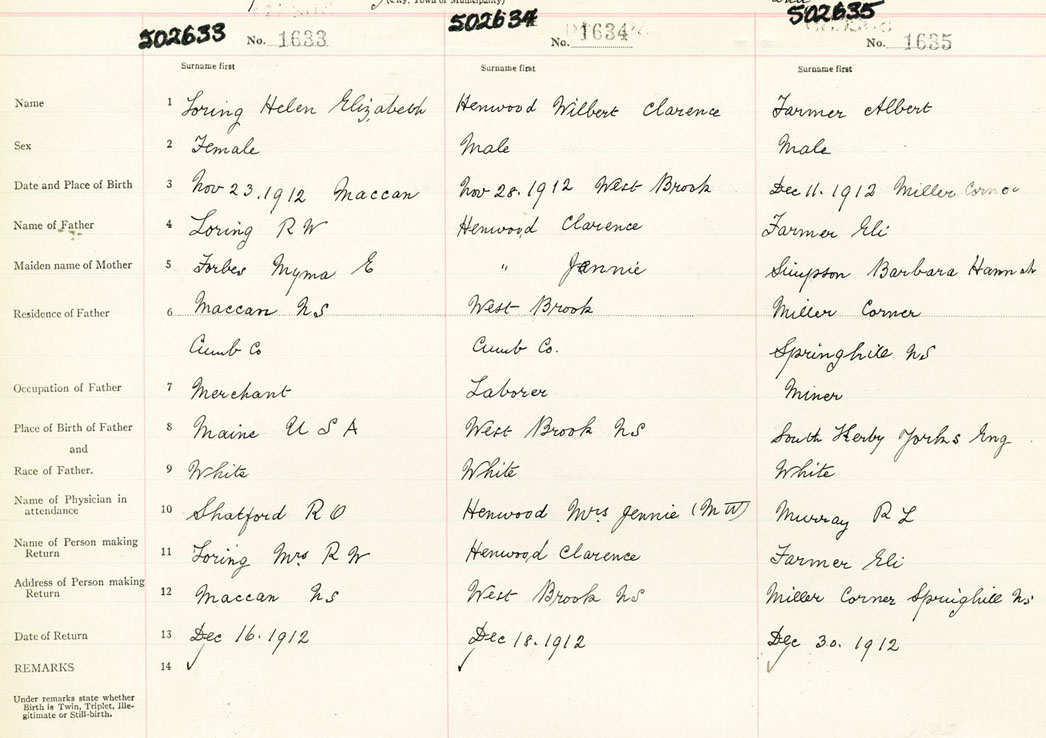 (City, Town or Municipality)
502633 No. 1633 502634 No. 1634 502635 No. 1635
Surname first Surname first Surname first
Name 1 Loring Helen Elizabeth Henwood Wilbert Clarence Farmer Albert
Sex 2 Female Male Male
Date and Place of Birth 3 Nov 23.1912 Maccan Nov 28.1912 West Brook Dec 11.1912 Miller Corner
Name of Father 4 Loring R W Henwood Clarence Farmer Eli
Maiden name of Mother 5 Forbes Myma E " Jennie Simpson Barbara Hannah
Residence of Father 6 Maccan NS West Brook Miller Corner
Cumb Co Cumb Co. Springhill NS
Occupation of Father 7 Merchant Laborer Miner
Place of Birth of Father 8 Maine U S A West Brook NS South Kerby Yorks Eng
and
Race of Father. 9 White White White
Name of Physician in
attendance 10 Shatford R O Henwood Mrs Jennie (MW) Murray R L
Name of Person making
Return 11 Loring Mrs R W Henwood Clarence Farmer Eli
Address of Person making
Return 12 Maccan NS West Brook NS Miller Corner Springhill NS
Date of Return 13 Dec 16.1912 Dec 18.1912 Dec 30.1912
REMARKS 14
Under remarks state whether
Birth is Twin, Triplet, Ille-
gitimate or Still-birth.